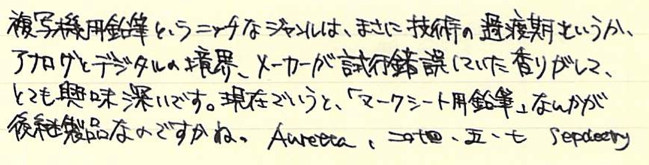 複写機用鉛筆というニッチなジャンルは、まさに技術の過渡期というか、
アナログとデジタルの境界、メーカーが試行錯誤していた香りがして、
とても興味深いです。現在でいうと、「マークシート用鉛筆」なんかが
後継製品なのですかね。 Auretta、